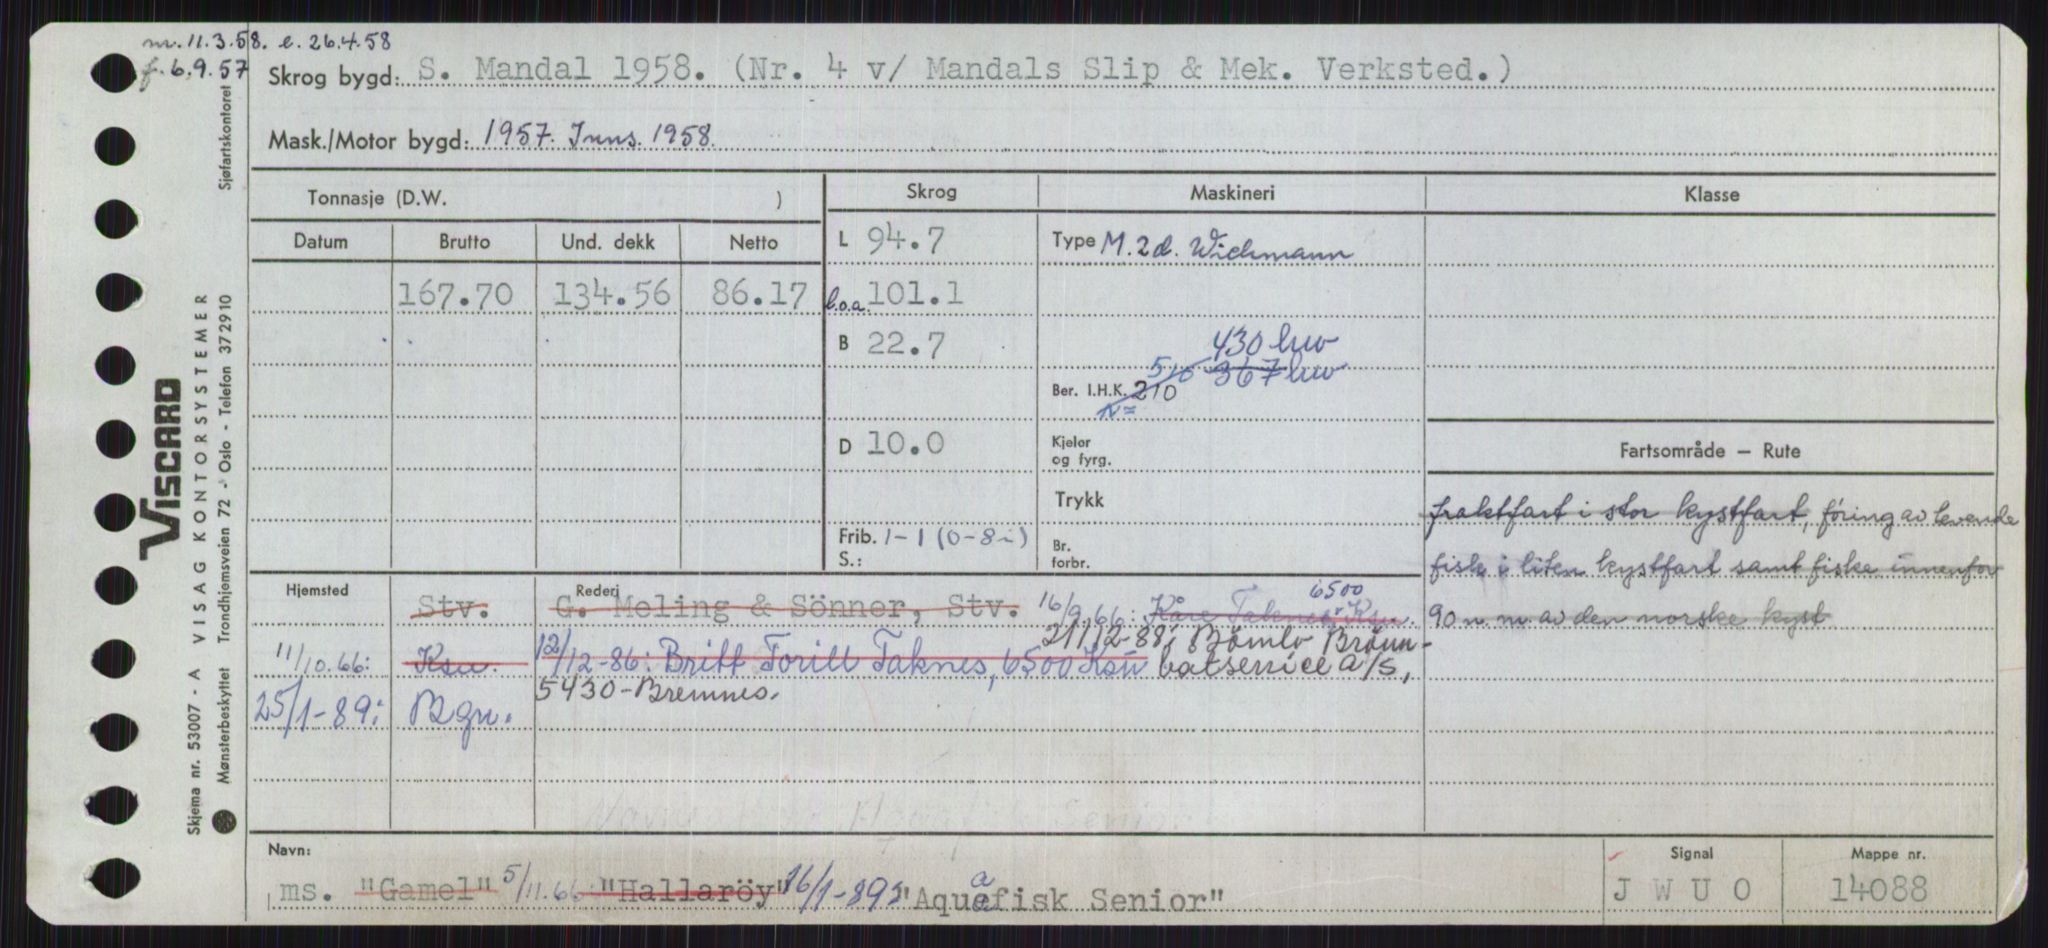 m. 11.3.58. e. 26.4.58
f. 6.9.57
Skrog bygd: S. Mandal 1958. (Nr. 4 v/ Mandals Slip & Mek. Verksted.)
Mask./Motor bygd: 1957. Inns. 1958.
Tonnasje (D.W. )
Skrog
Maskineri
Klasse
Datum
Brutto
Und. dekk
Netto
167.70
134.56
86.17
L 94.7
l.o.a. 101.1
B 22.7
D 10.0
Frib. 1-1 (0-8i)
S.:
Type M. 2d. Wichmann
430 hw
510 367 hw
Ber. I.H.K. 210
N=
Kjeler
og fyrg.
Trykk
Br.
forbr.
Fartsområde – Rute
fraktfart i stor kystfart, föring av levende
fisk i liten kystfart samt fiske innenfor
90 n. m. av den norske kyst
Hjemsted
Rederi
Stv.
G. Meling & Sönner, Stv. 16/9.66: Kåre Taknes, 6500 Ksu
11/10.66: Ksu.
12/12-86: Britt Torill Taknes, 6500 Ksu 21/12-88: Bömlo Brönn-
båtservice a/s,
5430-Bremnes.
25/1-89: Bgn.
Senior
Navn:
ms. "Gamel" 5/11.66: "Hallaröy" 16/1-89: "Aquafisk Senior"
Signal
J W U O
Mappe nr.
14088
Sjøfartskontoret
VISCARD
VISAG KONTORSYSTEMER
Skjema nr. 53007 - A
Mønsterbeskyttet Trondhjemsveien 72 - Oslo - Telefon 37 29 10